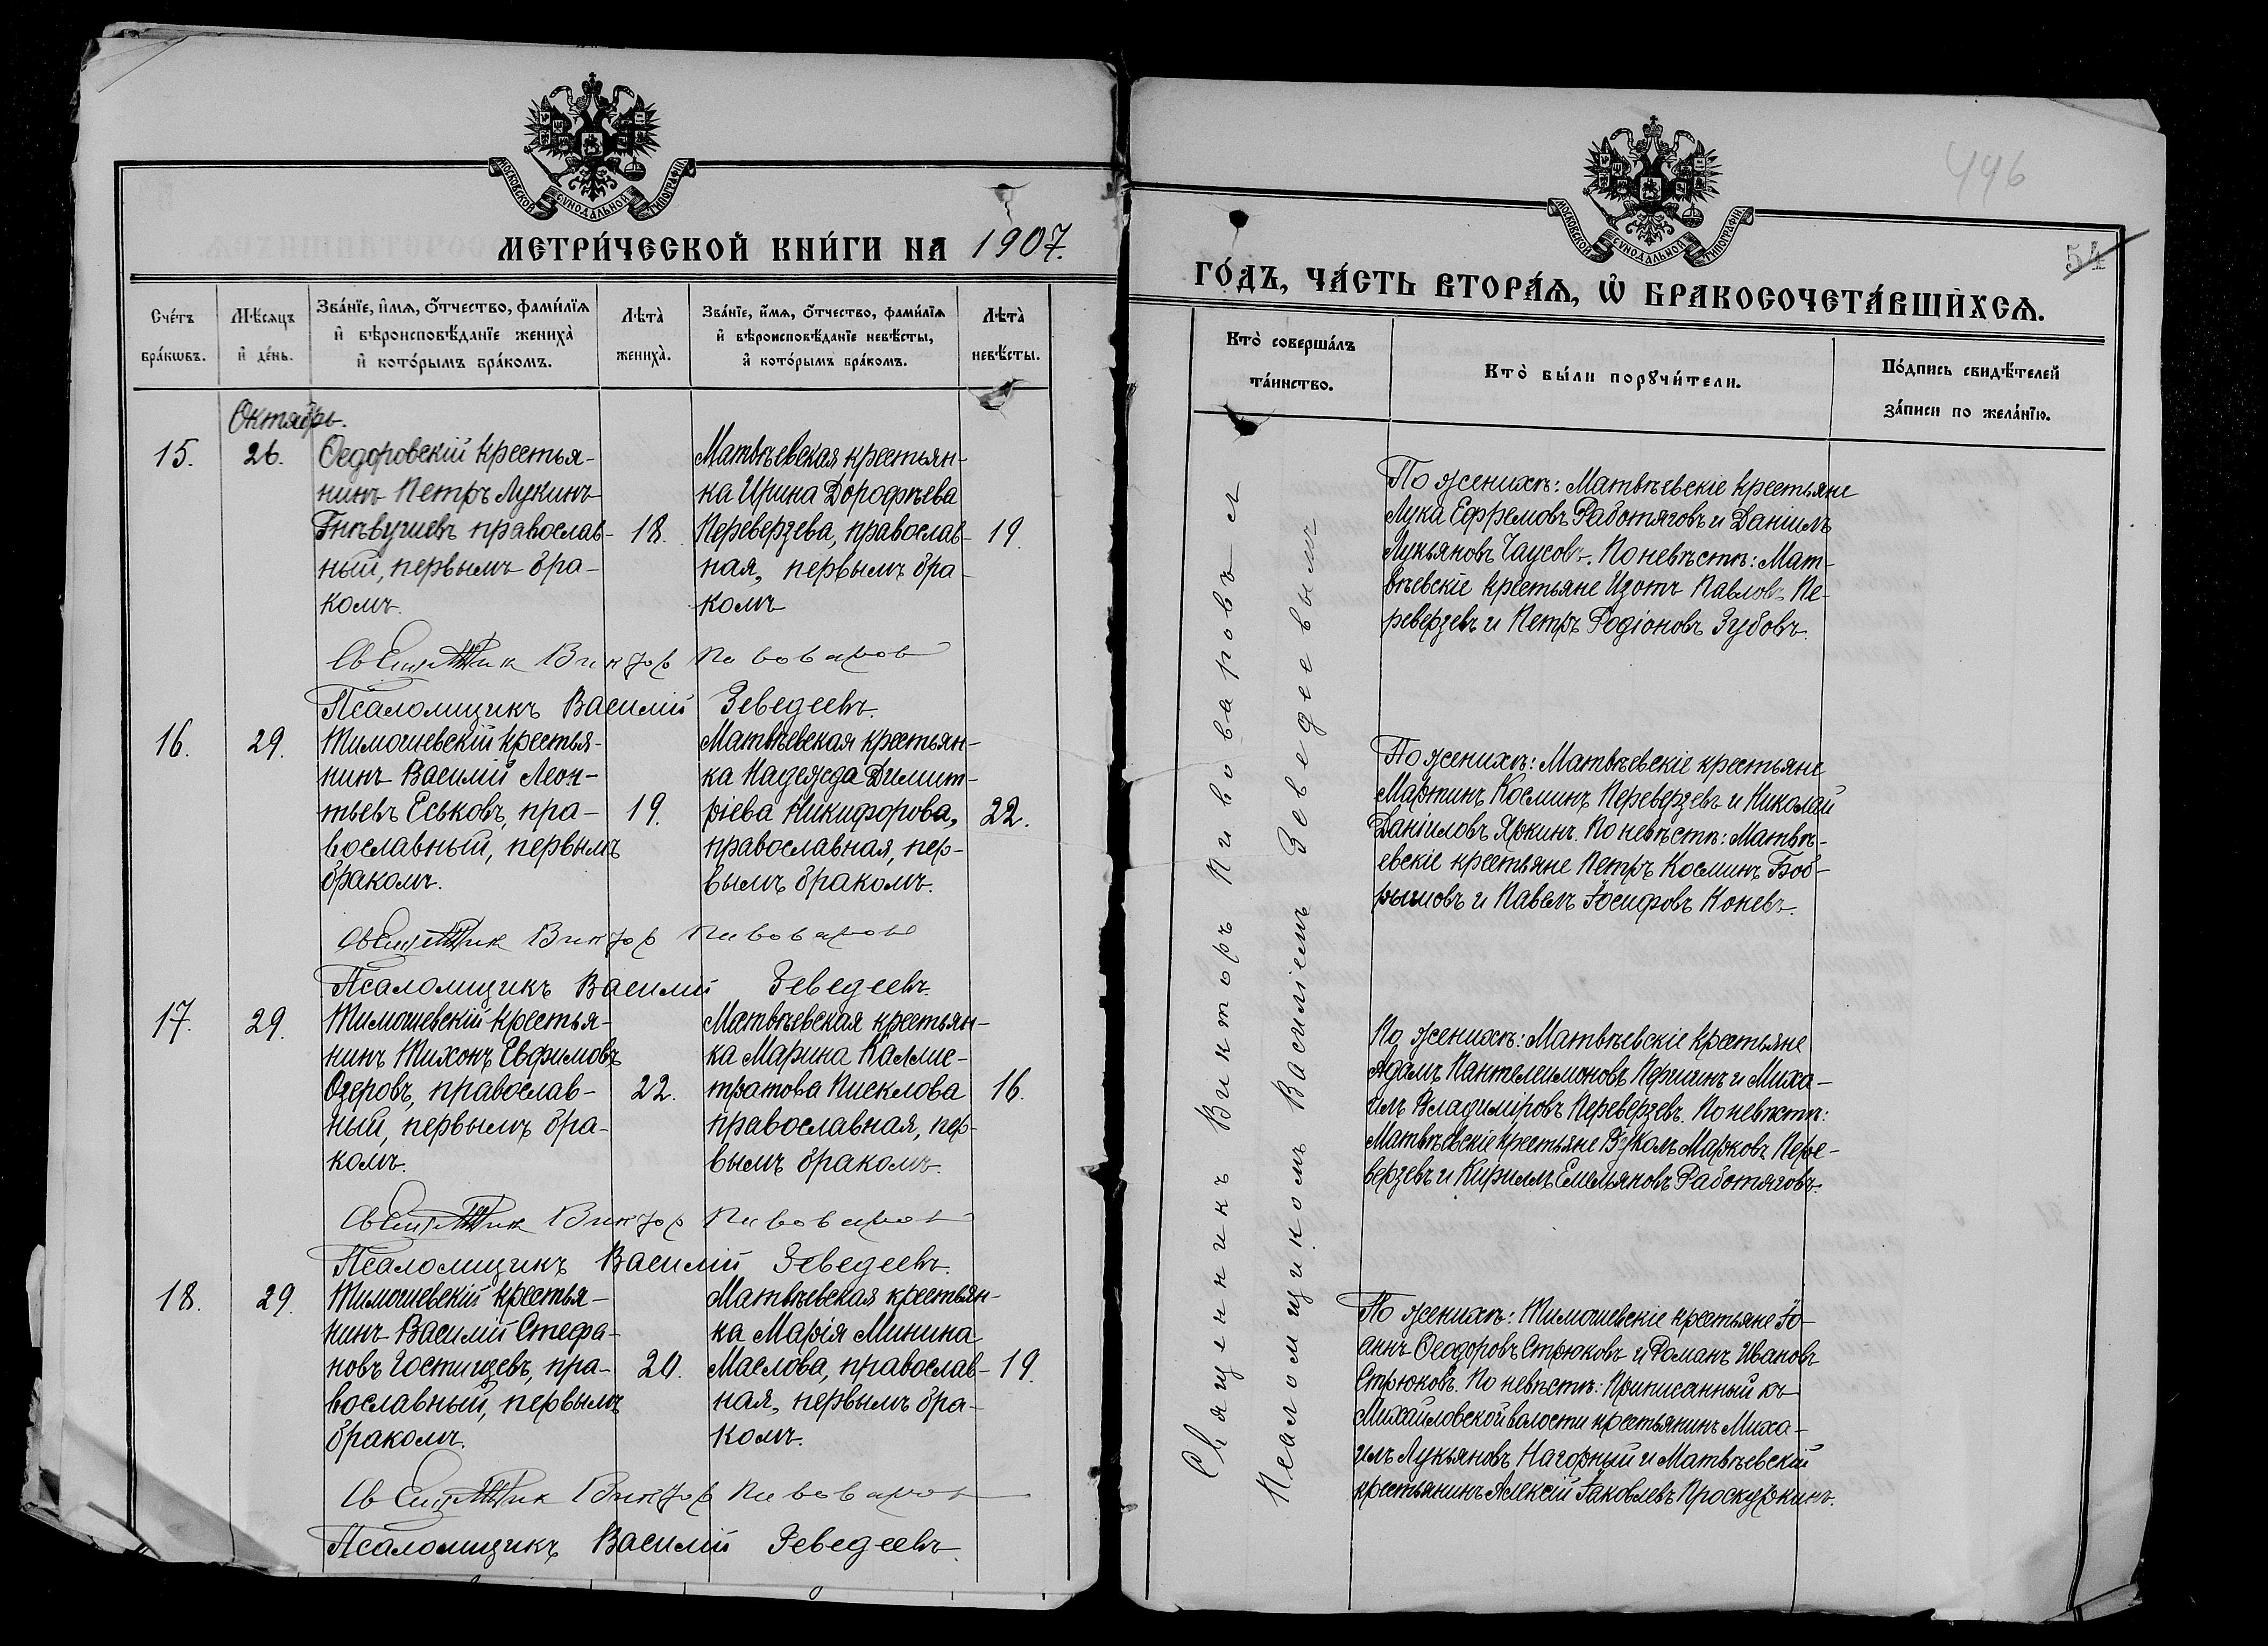 МОСКОВСКОЙ СѴНОДАЛЬНОЙ ТИПОГРАФІИ
МЕТРИ́ЧЕСКОЙ КНИ́ГИ НА 1907.
Сче́тъ бра́кωвъ.
Мѣ́сяцъ и҆ де́нь.
Зва́нїе, и҆́мѧ, ѻ҆́тчество, фами́лїѧ
и҆ вѣроисповѣ́данїе жениха̀
и҆ кото́рымъ бра́комъ.
Лѣта̀ жениха̀.
Зва́нїе, и҆́мѧ, ѻ҆́тчество, фами́лїѧ
и҆ вѣроисповѣ́данїе невѣ́сты,
и҆ кото́рымъ бра́комъ.
Лѣта̀ невѣ́сты.
Октябрь.
15. 26.
Ѳедоровскій крестья-
нинъ Петръ Лукинъ
Гнѣвушевъ православ-
ный, первымъ бра-
комъ.
18.
Матвѣевская крестьян-
ка Ирина Дорофѣева
Переверзева, православ-
ная, первымъ бра-
комъ
19.
Священникъ Викторъ Пивоваровъ
Псаломщикъ Василій Зеведеевъ.
16. 29.
Тимошевскій крестья-
нинъ Василій Леон-
тьевъ Еськовъ, пра-
вославный, первымъ
бракомъ.
19.
Матвѣевская крестьян-
ка Надежда Димит-
ріева Никифорова,
православная, пер-
вымъ бракомъ.
22.
Священникъ Викторъ Пивоваровъ
Псаломщикъ Василій Зеведеевъ.
17. 29.
Тимошевскій крестья-
нинъ Тихонъ Евфимовъ
Озеровъ, православ-
ный, первымъ бра-
комъ.
22.
Матвѣевская крестьян-
ка Марина Каллис-
тратова Писклова
православная, пер-
вымъ бракомъ.
16.
Священникъ Викторъ Пивоваровъ
Псаломщикъ Василій Зеведеевъ.
18. 29.
Тимошевскій крестья-
нинъ Василій Стефа-
новъ Гостищевъ, пра-
вославный, первымъ
бракомъ.
20.
Матвѣевская крестьян-
ка Марія Минина
Маслова, православ-
ная, первымъ бра-
комъ.
19.
Священникъ Викторъ Пивоваровъ
Псаломщикъ Василій Зеведеевъ.
446
54
МОСКОВСКОЙ СѴНОДАЛЬНОЙ ТИПОГРАФІИ
ГО́ДЪ, ЧА́СТЬ ВТОРА́Ѧ, Ѡ҆ БРАКОСОЧЕТА́ВШИХСѦ.
Кто̀ соверша́лъ
та́инство.
Кто̀ бы́ли порꙋчи́тели.
По́дпись свидѣ́телей
за́писи по жела́нїю.
Священникъ Викторъ Пивоваровъ съ
Псаломщикомъ Василіемъ Зеведеевымъ
По женихѣ: Матвѣевскіе крестьяне
Лука Ефремовъ Работяговъ и Даніилъ
Лукьяновъ Чаусовъ. По невѣстѣ: Мат-
вѣевскіе крестьяне Изотъ Павловъ Пе-
реверзевъ и Петръ Родіоновъ Зубовъ.
По женихѣ: Матвѣевскіе крестьяне
Мартинъ Косминъ Переверзевъ и Николай
Даніиловъ Яркинъ. По невѣстѣ: Матвѣ-
евскіе крестьяне Петръ Косминъ Боб-
рышовъ и Павелъ Іосифовъ Коневъ.
По женихѣ: Матвѣевскіе крестьяне
Адамъ Пантелеимоновъ Першинъ и Миха-
илъ Владиміровъ Переверзевъ. По невѣстѣ:
Матвѣевскіе крестьяне Вуколъ Марковъ Пере-
верзевъ и Кириллъ Емельяновъ Работяговъ.
По женихѣ: Тимошевскіе крестьяне Іо-
аннъ Ѳеодоровъ Стрюковъ и Романъ Ивановъ
Стрюковъ. По невѣстѣ: Приписанный къ
Михайловской волости крестьянинъ Миха-
илъ Лукьяновъ Нагорный и Матвѣевскій
крестьянинъ Алексій Іаковлевъ Проскуркинъ.